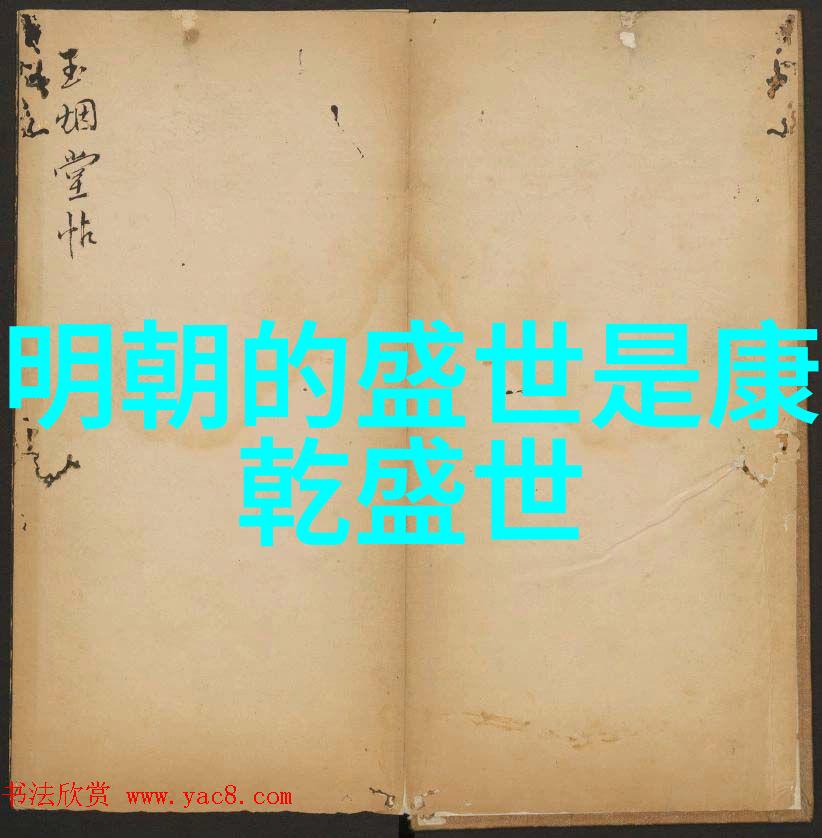 玉烟堂帖
明朝的盛世是康
乾盛世
书法欣赏 www.yac8.com